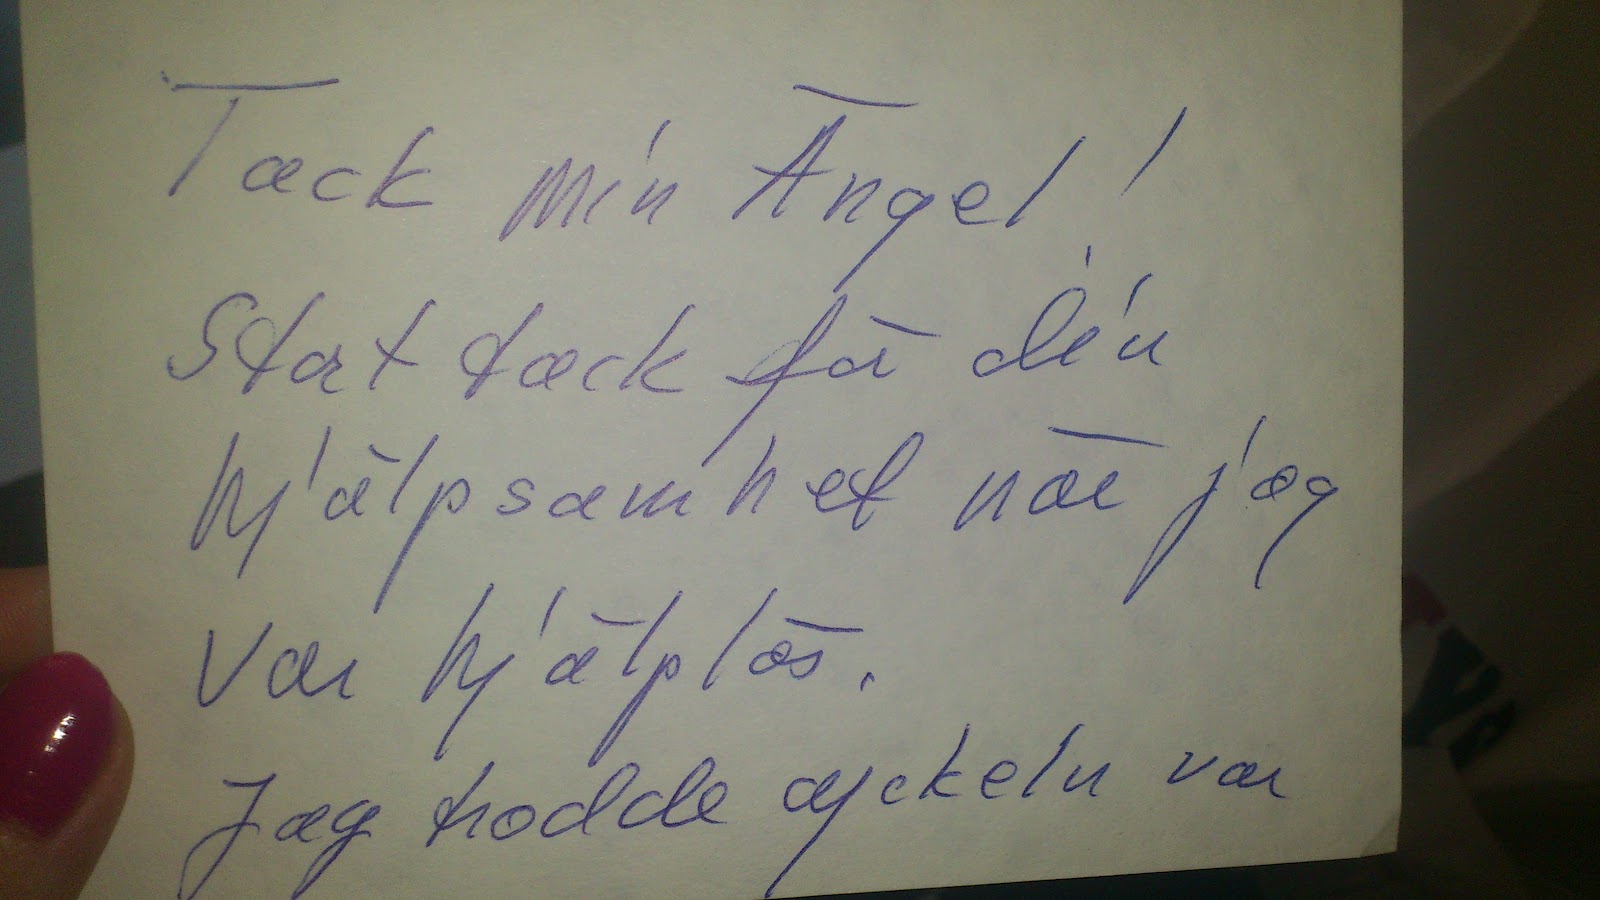 Tack min Ängel!
Stort tack för din
hjälpsamhet när jag
var hjälplös.
Jag trodde cyckeln var